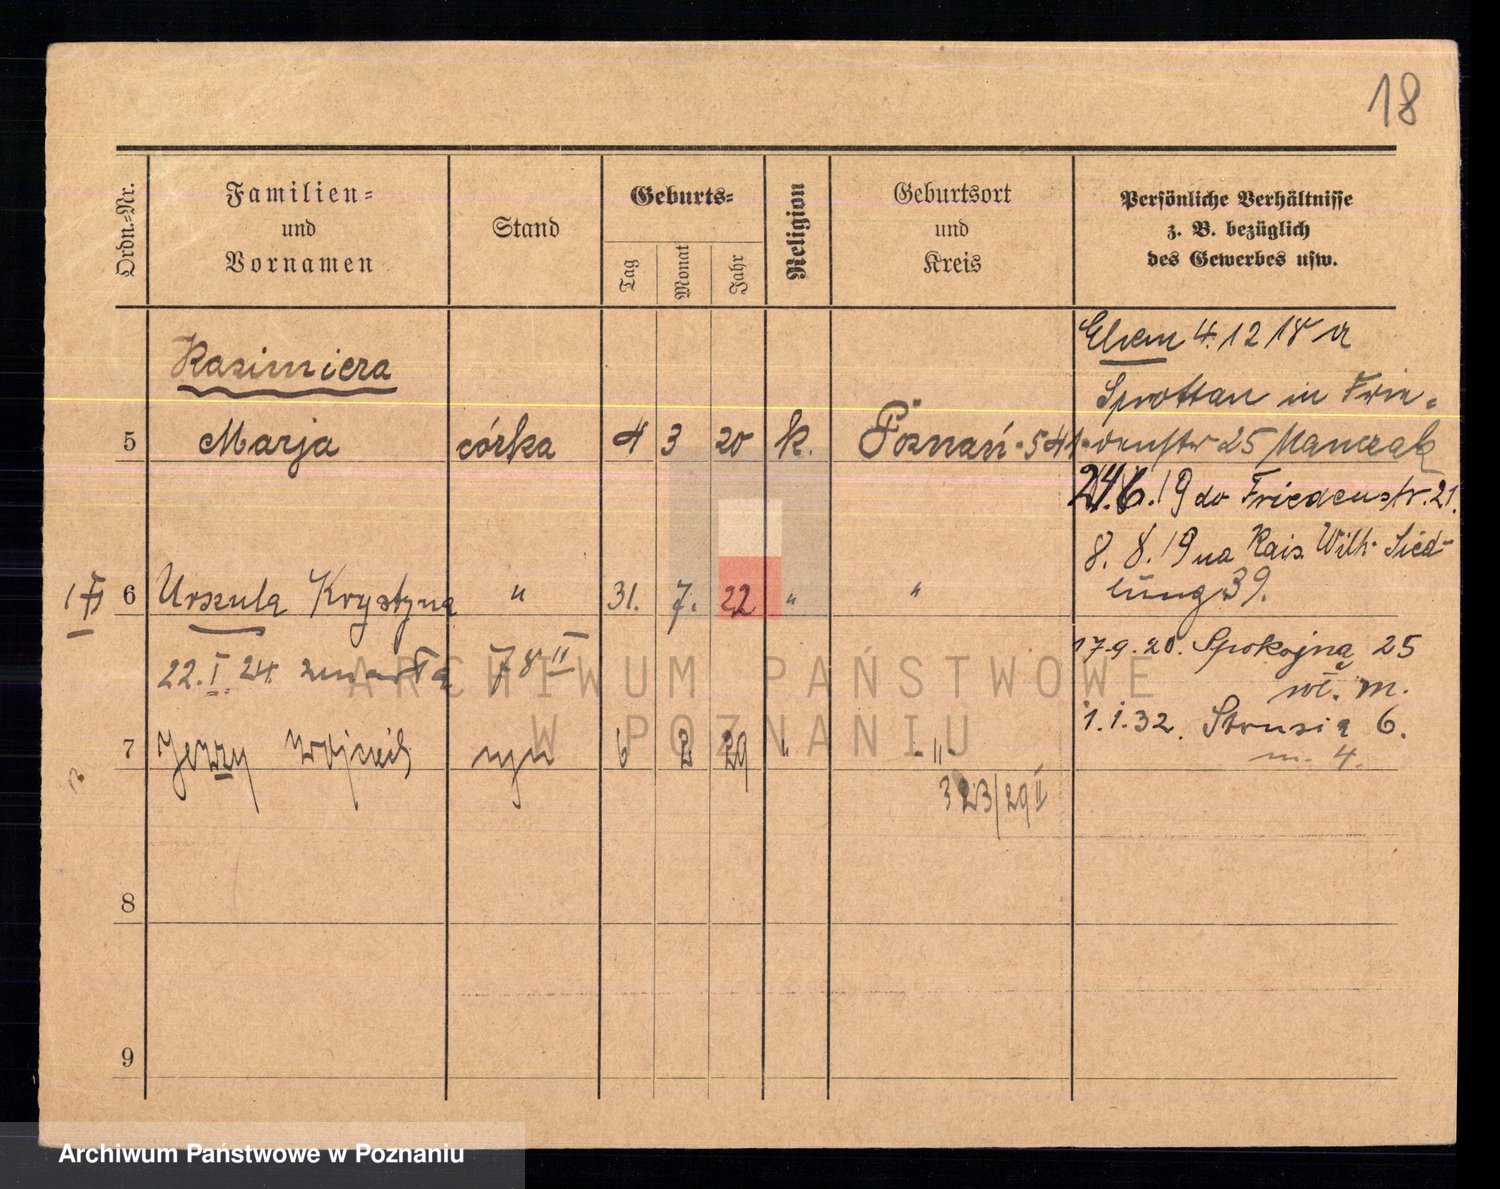 18
Ordn.-Nr.
Familien-
und
Vornamen
Stand
Geburts-
Tag
Monat
Jahr
Religion
Geburtsort
und
Kreis
Persönliche Verhältnisse
z. B. bezüglich
des Gewerbes usw.
4. 12 18
Kazimiera
Sprottau in Frie-
5 Marja córka 4 3 20 k. Poznań 541 denstr 25 Manczak
24.6.19 do Friedenstr. 21.
8. 8. 19 na Kais. Wilh. Sied-
lung 39.
6 Urszula Krystyna " 31. 7. 22 " "
17.9.20. Spokojna 25
22. I. 24 zmarła 78 II
wł. m.
1.1.32. Strusia 6.
7 Jerzy Wojciech syn 6 2 29 " - " -
m. 4.
323/29 II
8
9
ARCHIWUM PAŃSTWOWE
W POZNANIU
Archiwum Państwowe w Poznaniu